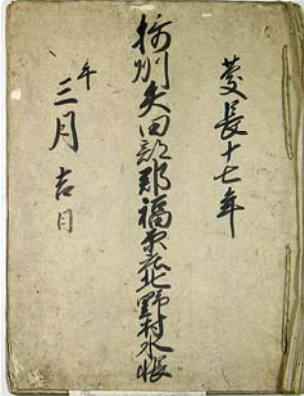 慶長十七年
摂州矢田部郡福原庄北野村水帳
三月吉日